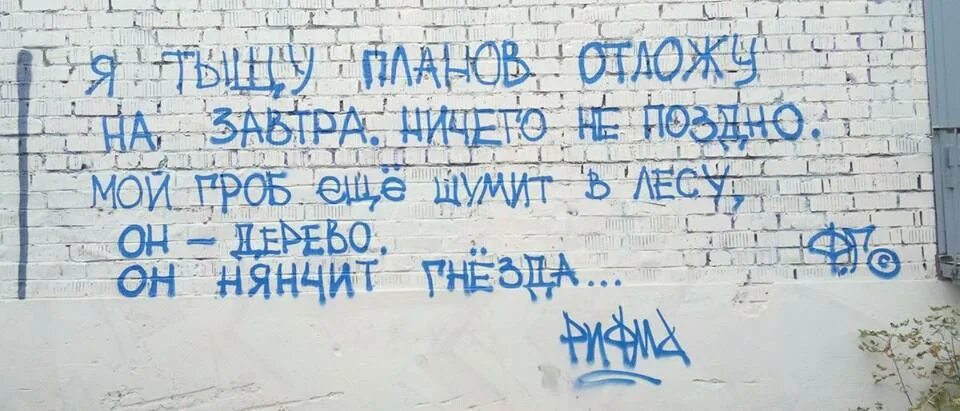 Я ТЫЩУ ПЛАНОВ ОТЛОЖУ
НА ЗАВТРА. НИЧЕГО НЕ ПОЗДНО.
МОЙ ГРОБ ЕЩЁ ШУМИТ В ЛЕСУ,
ОН - ДЕРЕВО.
ОН НЯНЧИТ ГНЁЗДА...
ФГ ©
РИФМА